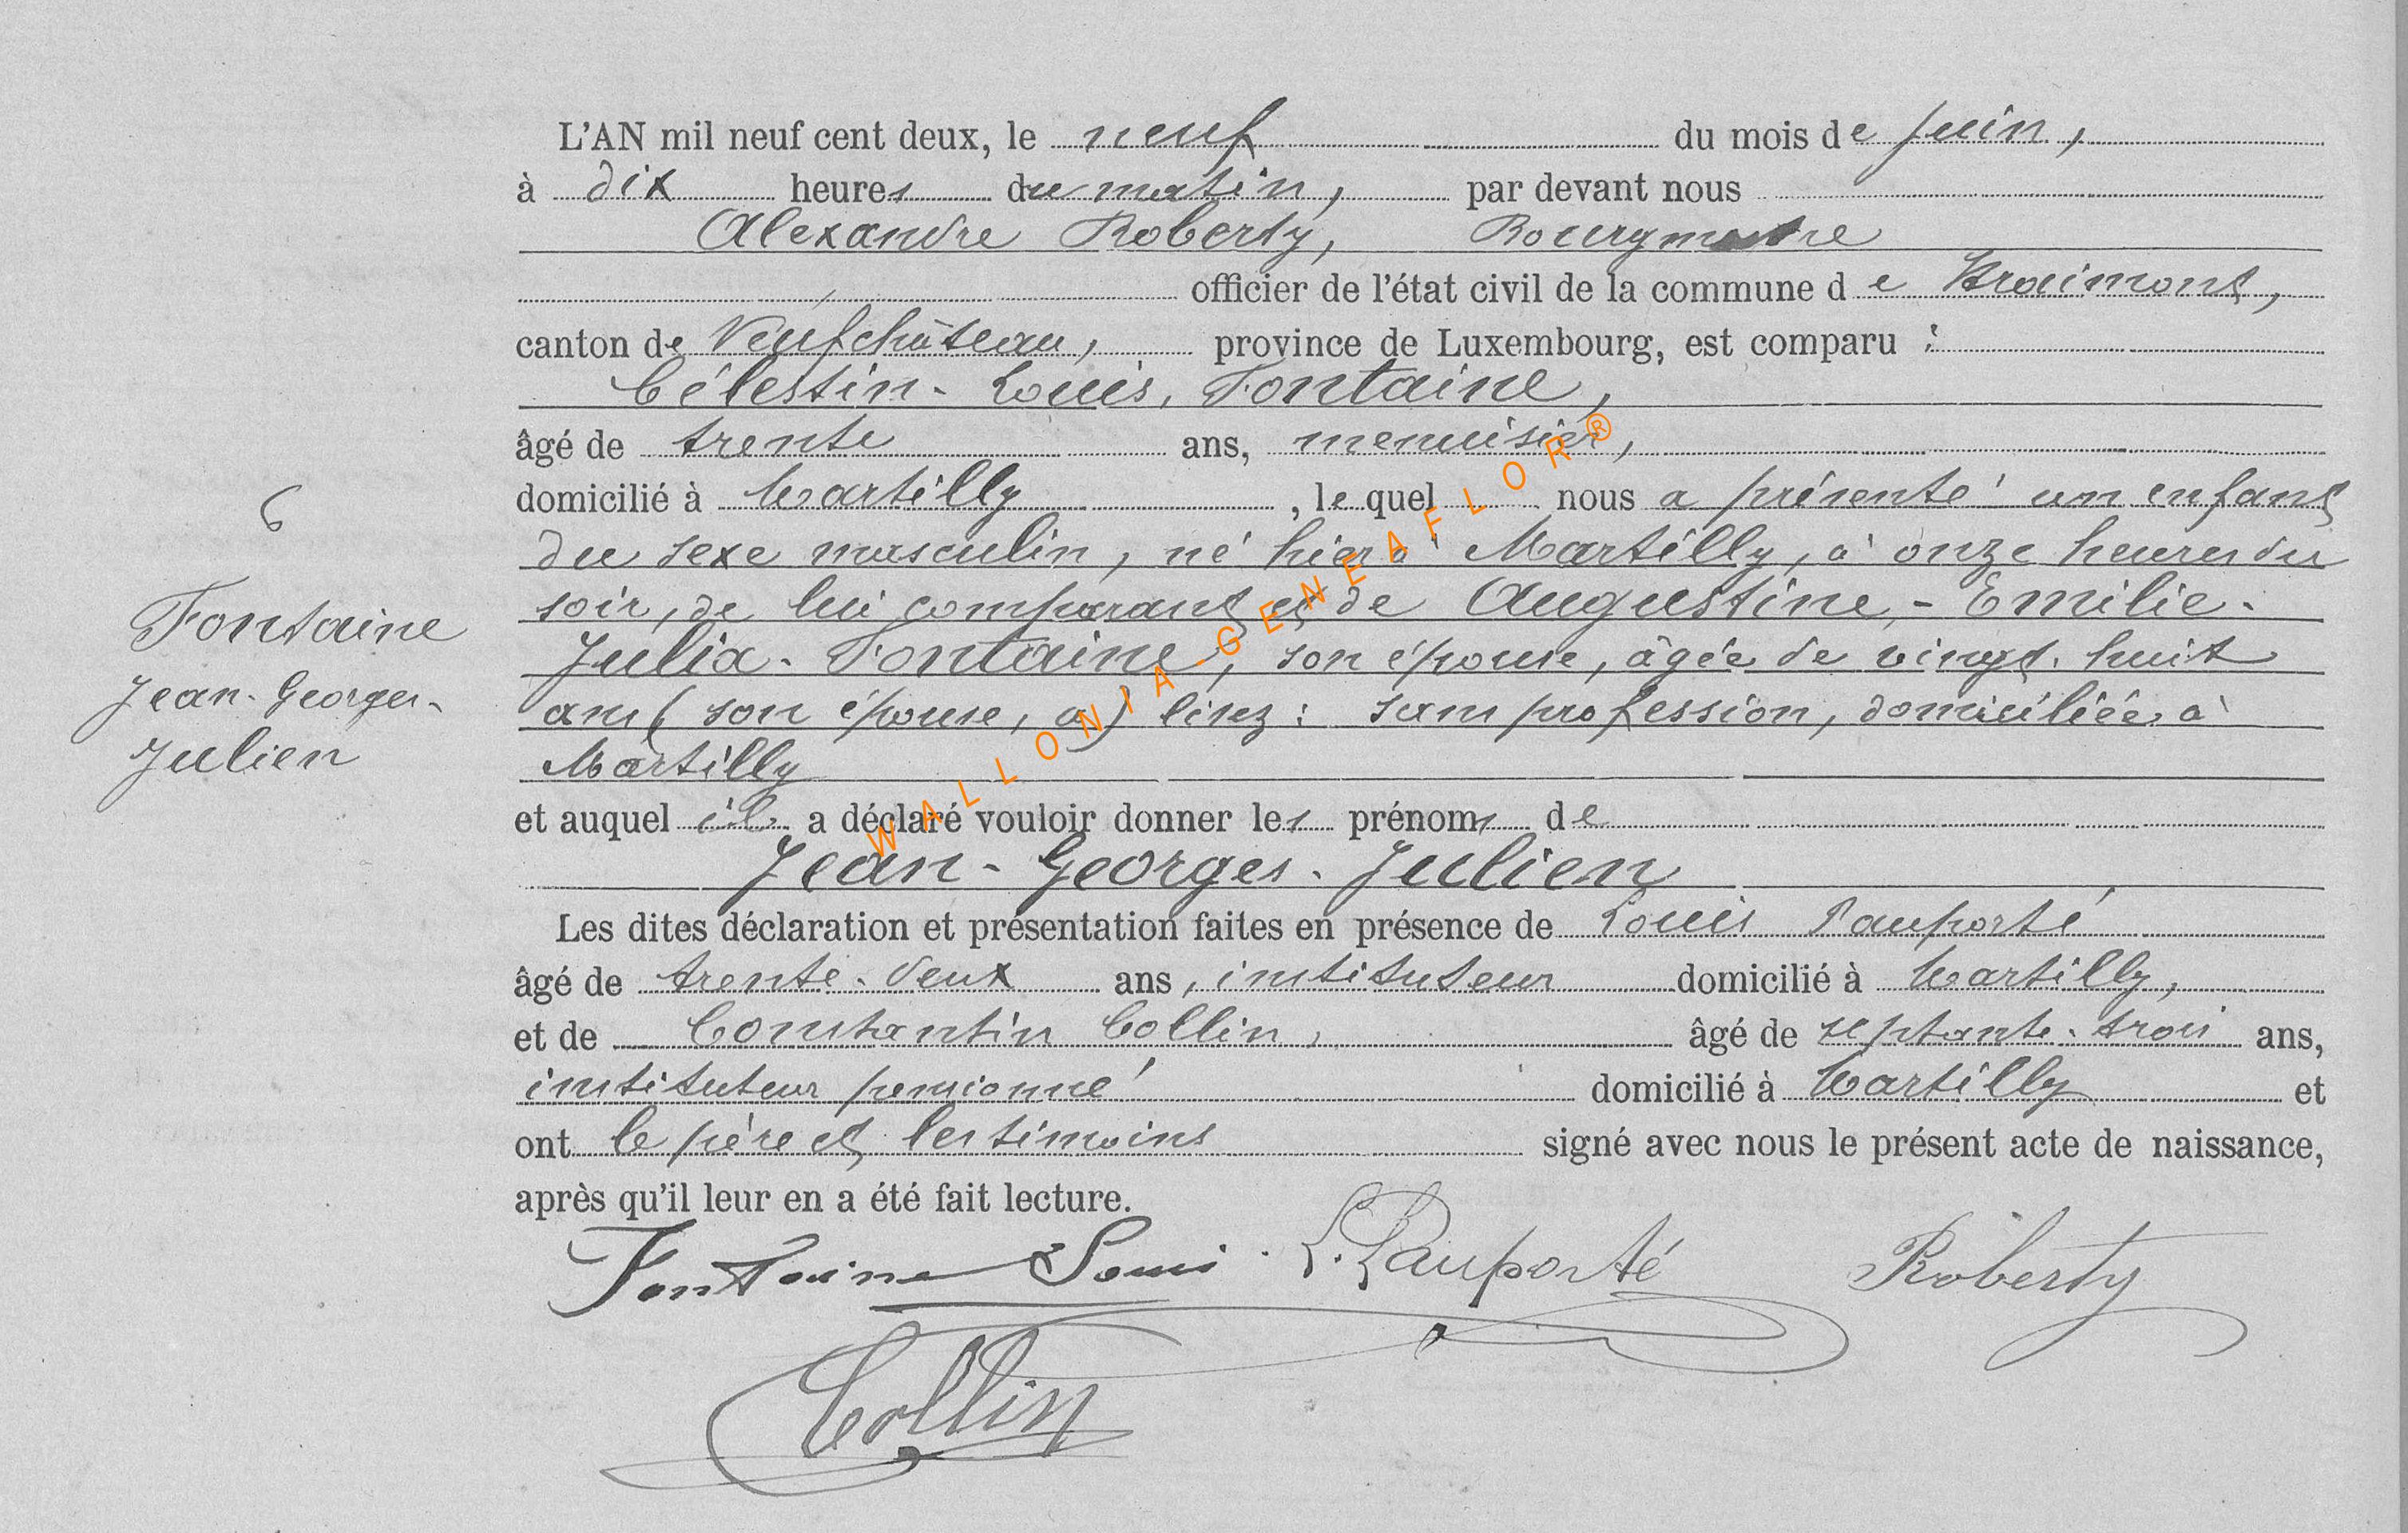 L'AN mil neuf cent deux, le neuf du mois de Juin,
à dix heures du matin, par devant nous
Alexandre Roberty, Bourgmestre
officier de l'état civil de la commune de Straimont,
canton de Neufchâteau, province de Luxembourg, est comparu :
Célestin-Louis, Fontaine,
âgé de trente ans, menuisier,
domicilié à Martilly, lequel nous a présenté un enfant
du sexe masculin, né hier à Martilly, à onze heures du
soir, de lui comparant et de Augustine,-Emilie-
Julia-Fontaine, son épouse, âgée de vingt-huit
ans (son épouse, a) lisez : sans profession, domiciliée à
Martilly
et auquel il a déclaré vouloir donner les prénoms de
Jean-Georges-Julien
Les dites déclaration et présentation faites en présence de Louis Pauporté
âgé de trente-deux ans, instituteur domicilié à Martilly,
et de Constantin Collin, âgé de septante-trois ans,
instituteur pensionné domicilié à Martilly et
ont le père et les témoins signé avec nous le présent acte de naissance,
après qu'il leur en a été fait lecture.
Fontaine Louis L. Pauporté Roberty
Collin
6
Fontaine
Jean-Georges-
Julien
WALLONIA-GENEAFLOR®